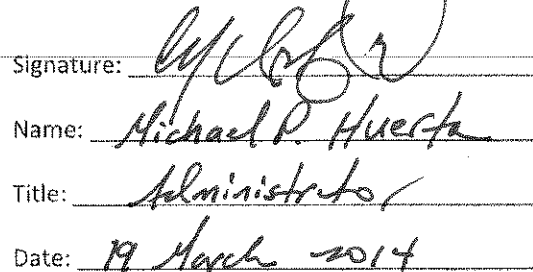 Signature:
Name: Michael P. Huerta
Title: Administrator
Date: 19 March 2014